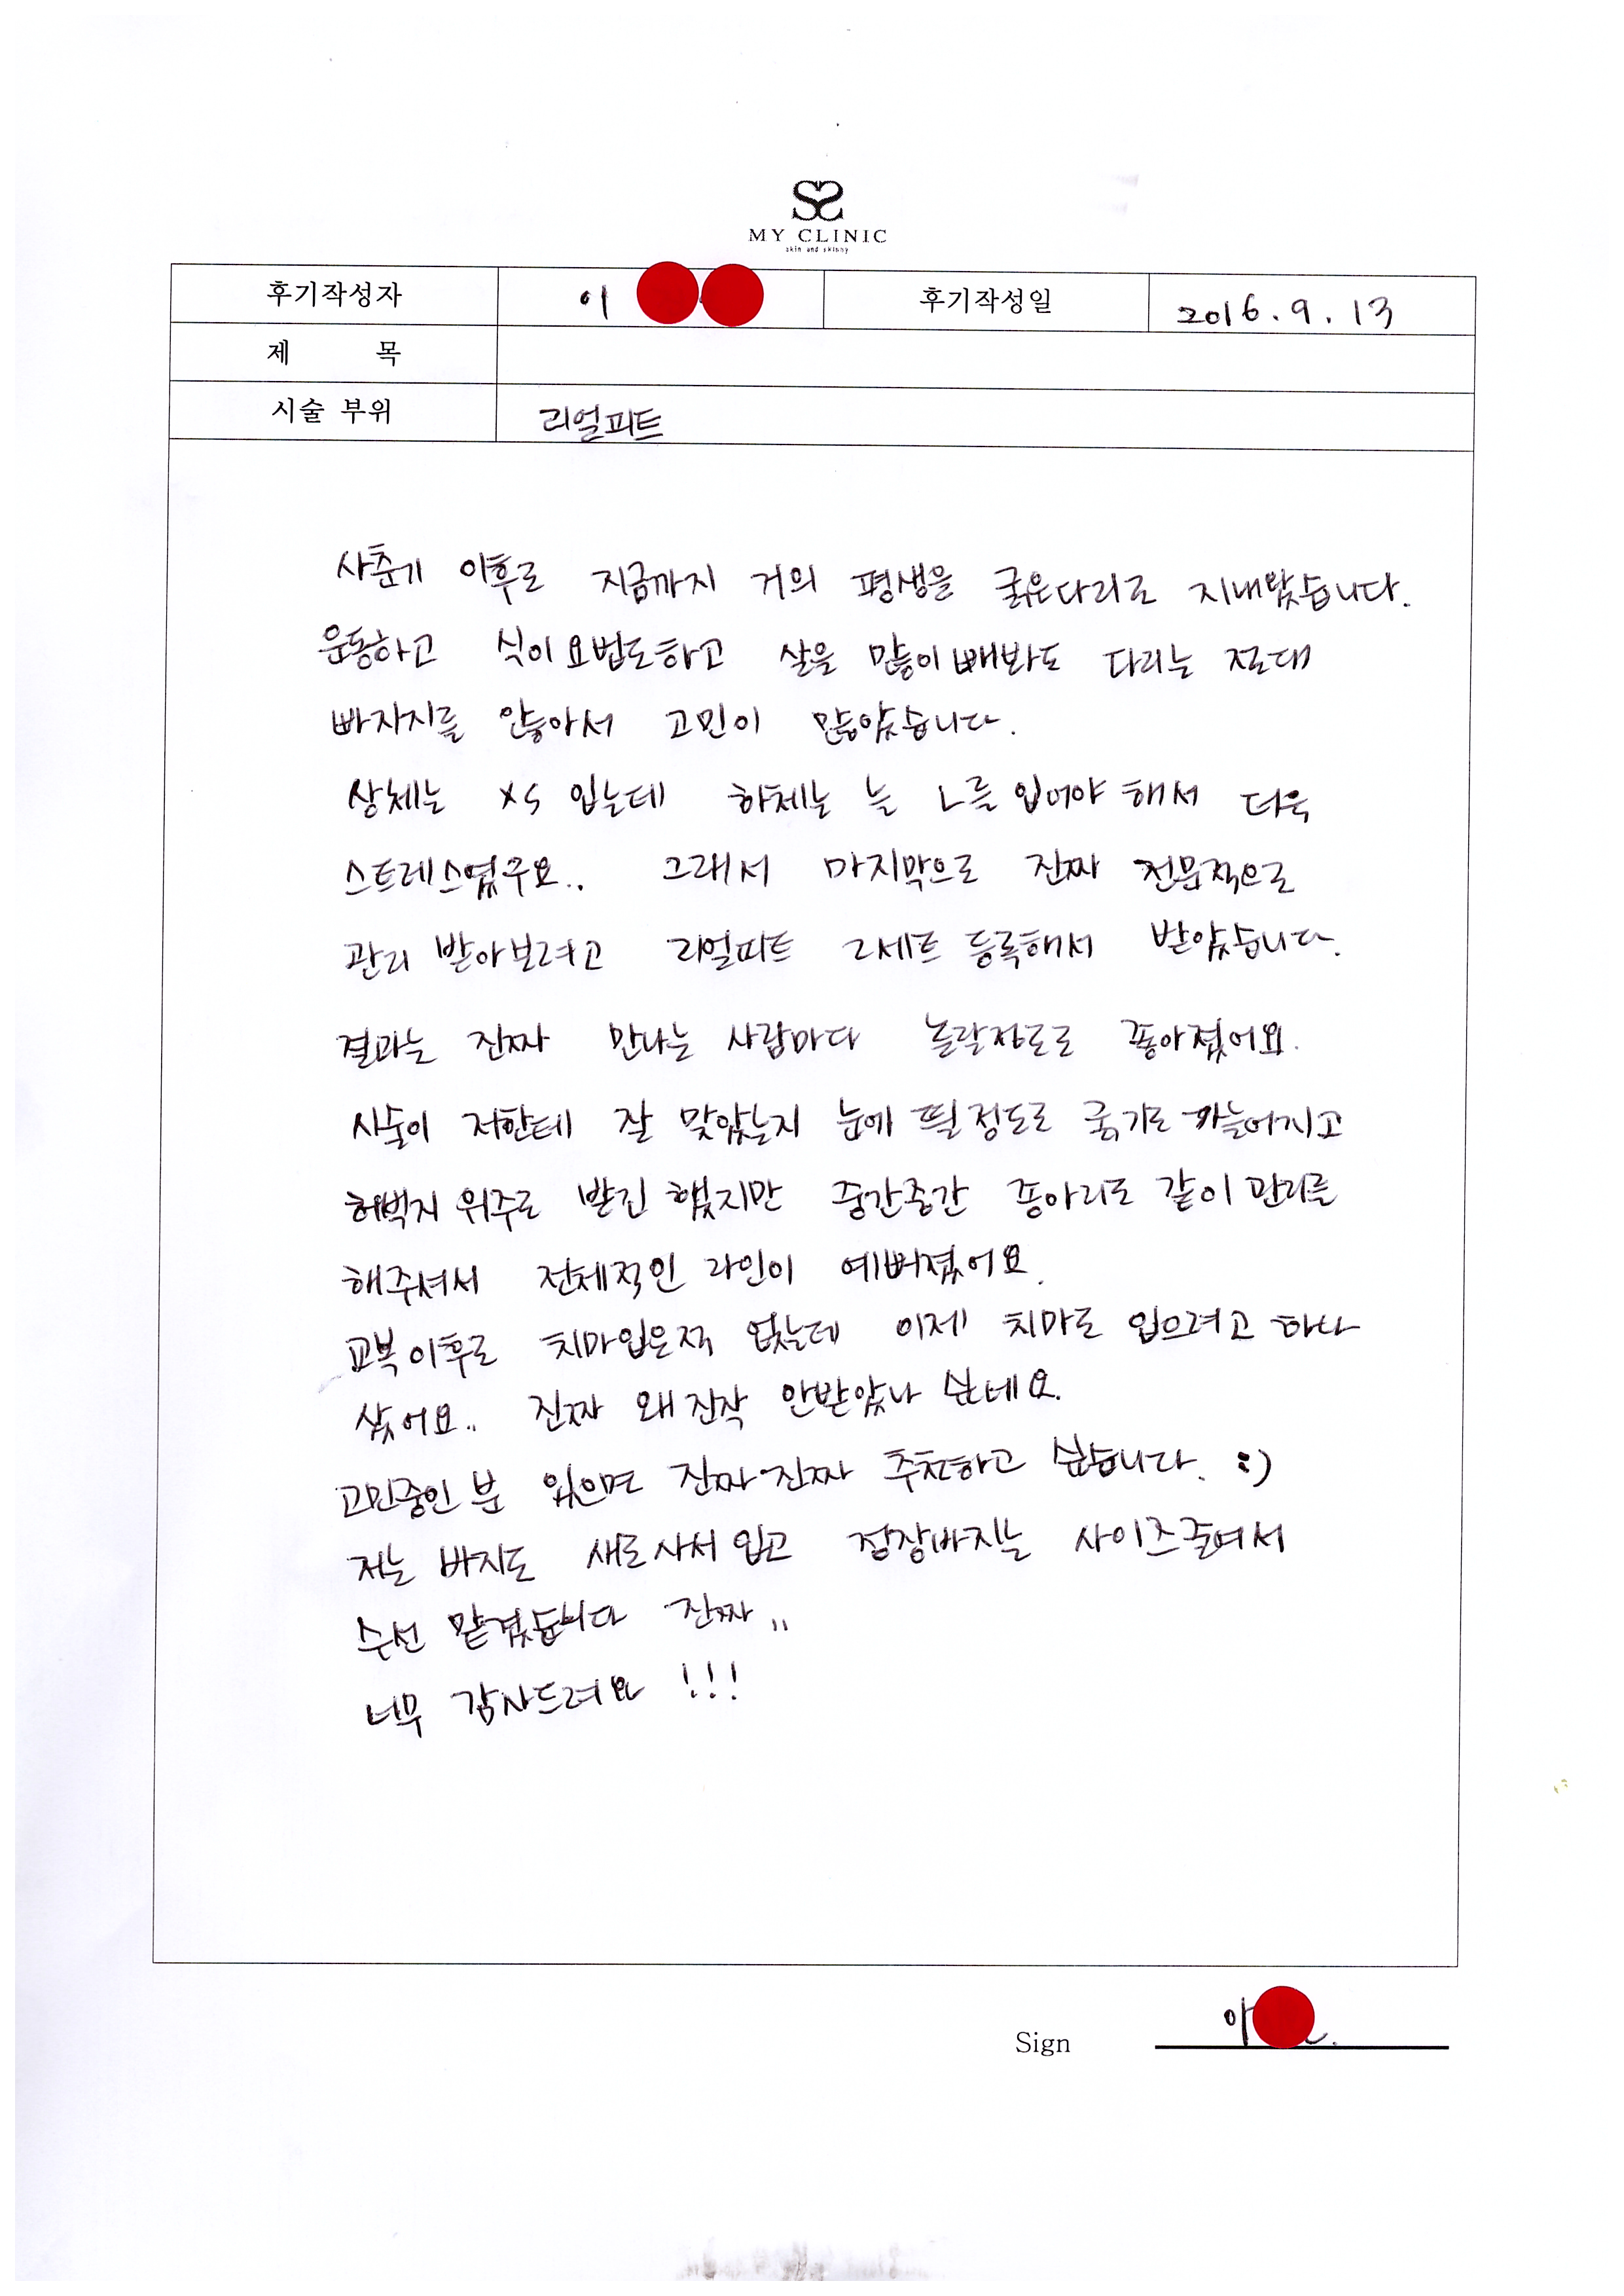 MY CLINIC
skin and skinny
후기작성자 이 후기작성일 2016. 9. 13
제 목
시술 부위 리얼피트
사춘기 이후로 지금까지 거의 평생을 굵은다리로 지내왔습니다.
운동하고 식이요법도하고 살을 많이빼봐도 다리는 절대
빠지지를 않아서 고민이 많았습니다.
상체는 XS 입는데 하체는 늘 L를 입어야 해서 더욱
스트레스였구요.. 그래서 마지막으로 진짜 전문적으로
관리 받아보려고 리얼피트 2세트 등록해서 받았습니다.
결과는 진짜 만나는 사람마다 놀랄정도로 좋아졌어요.
시술이 저한테 잘 맞았는지 눈에 띌정도로 굵기도 가늘어지고
허벅지 위주로 받긴 했지만 중간중간 종아리도 같이 관리를
해주셔서 전체적인 라인이 예뻐졌어요.
교복이후로 치마입은적 없는데 이제 치마도 입으려고 하나
샀어요.. 진짜 왜 진작 안받았나 싶네요.
고민중인 분 있으면 진짜진짜 추천하고 싶습니다. :)
저는 바지도 새로사서 입고 정장바지는 사이즈줄여서
수선 맡겼습니다 진짜..
너무 감사드려요 !!!
Sign 이